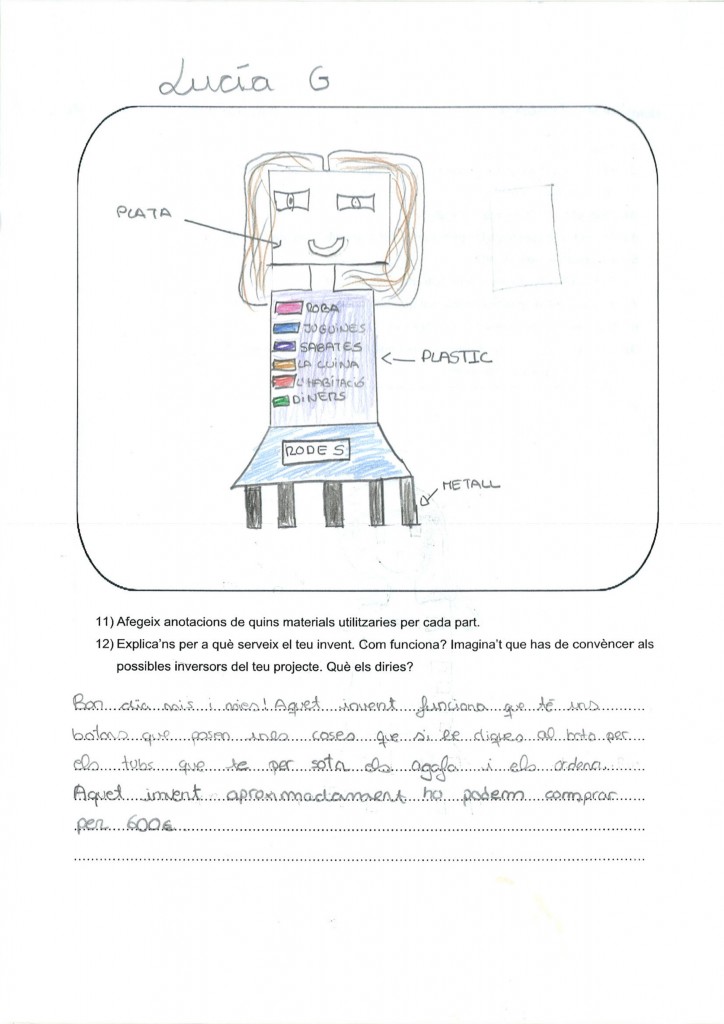 Lucía G
PLATA
ROBA
JOGUINES
SABATES
LA CUINA
L'HABITACIÓ
DINERS
PLASTIC
RODES
METALL
11) Afegeix anotacions de quins materials utilitzaries per cada part.
12) Explica'ns per a què serveix el teu invent. Com funciona? Imagina't que has de convèncer als
possibles inversors del teu projecte. Què els diries?
Bon dia nois i noies! Aquet invent funciona que té uns
botons que posen unes coses que si li digues al boto per
els tubs que te per sota els agafa i els ordena.
Aquet invent aproximadament ho podem comprar
per 600€